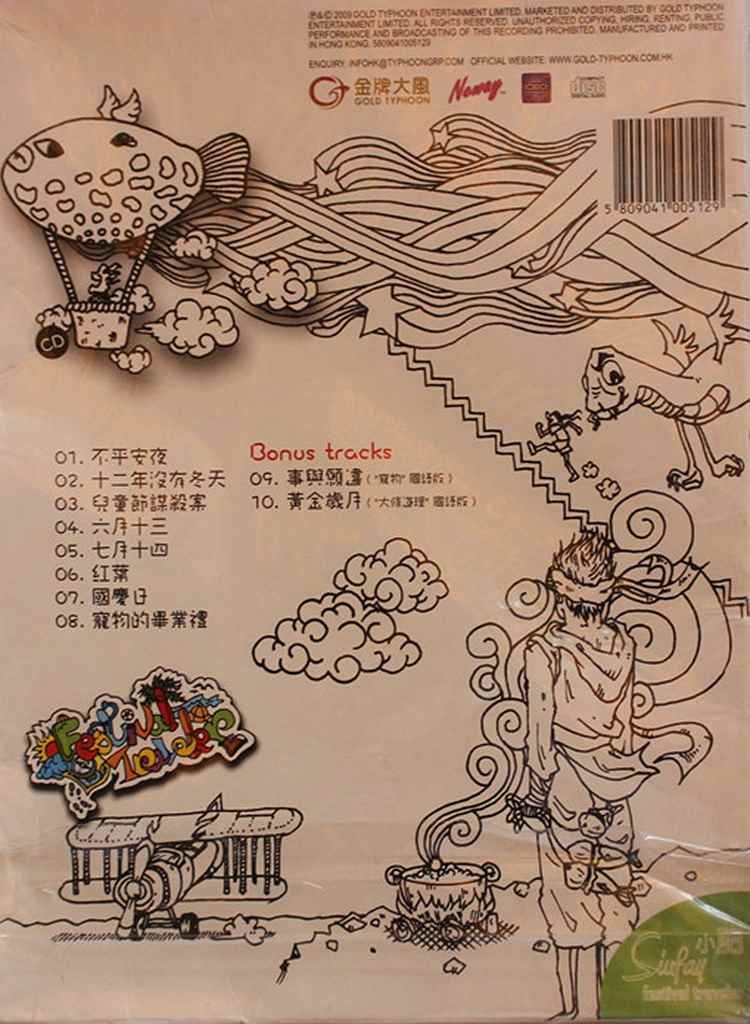 ℗&© 2009 GOLD TYPHOON ENTERTAINMENT LIMITED. MARKETED AND DISTRIBUTED BY GOLD TYPHOON
ENTERTAINMENT LIMITED. ALL RIGHTS RESERVED. UNAUTHORIZED COPYING, HIRING, RENTING, PUBLIC
PERFORMANCE AND BROADCASTING OF THIS RECORDING PROHIBITED. MANUFACTURED AND PRINTED
IN HONG KONG. 5809041005129
ENQUIRY: INFOHK@TYPHOONGRP.COM OFFICIAL WEBSITE: WWW.GOLD-TYPHOON.COM.HK
金牌大風
GOLD TYPHOON
Neway
disc
DIGITAL AUDIO
5 809041 005129
CD
01. 不平安夜
02. 十二年沒有冬天
03. 兒童節謀殺案
04. 六月十三
05. 七月十四
06. 紅葉
07. 國慶日
08. 寵物的畢業禮
Bonus tracks
09. 事與願違 ("寵物" 國語版)
10. 黃金歲月 ("大條道理" 國語版)
Festival
Traveler
Siufay
小肥
festival traveler